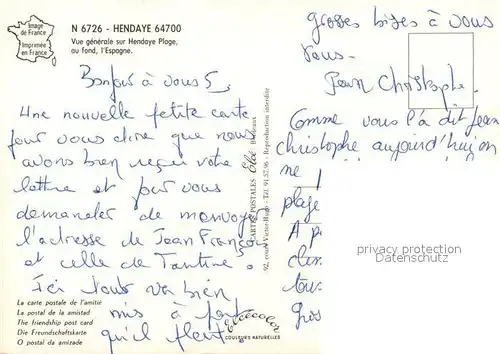 Image
de France
Imprimée
en France
N 6726 - HENDAYE 64700
Vue générale sur Hendaye Plage,
au fond, l'Espagne.
Bonjour à vous 5,
une nouvelle petite carte
pour vous dire que nous
avons bien reçu votre
lettre et pour vous
demander de m'envoyer
l'adresse de Jean François
et celle de Tantine.
Ici tout va bien
mis à part
qu'il pleut.
La carte postale de l'amitié
La postal de la amistad
The friendship post card
Die Freundschaftskarte
O postal da amizade
Elcécolor
COULEURS NATURELLES
CARTES POSTALES Elcé Bordeaux
92, cours Victor-Hugo - Tél. 91.57.06 - Reproduction interdite
grosses bises à vous
tous.
Jean Christophe.
Comme vous l'a dit Jean
Christophe aujourd'huy on
ne
plage
A
tous
gros
privacy protection
Datenschutz